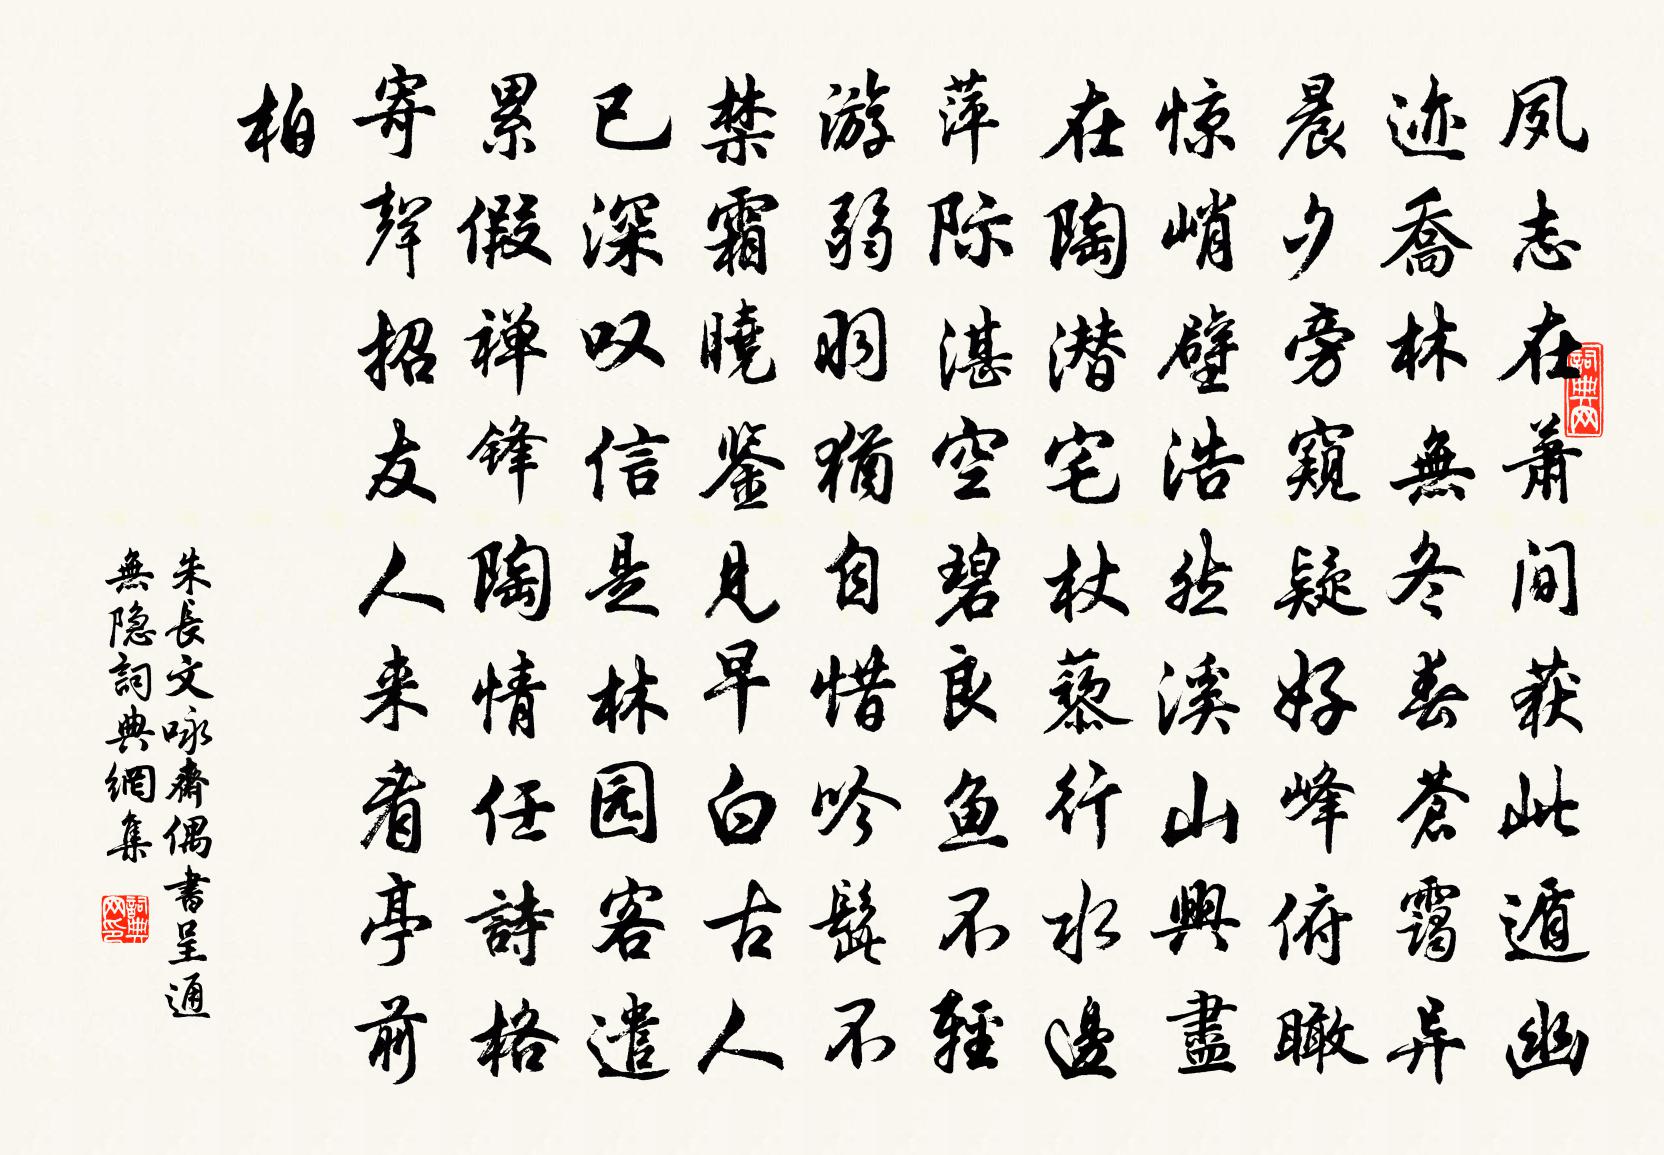 夙志在萧间获此遁幽
迹喬林無冬春蒼靄异
晨夕旁窺疑好峰俯瞰
惊峭壁浩然溪山興盡
在陶潜宅杖藜行水邊
萍际湛空碧良鱼不輕
游弱羽犹自惜吟髭不
禁霜曉鉴見早白古人
已深叹信是林园客遣
累假禅锋陶情任詩格
寄聲招友人来看亭前
柏
朱長文咏齋偶書呈通
無隐詞典網集
詞典网
詞典网印